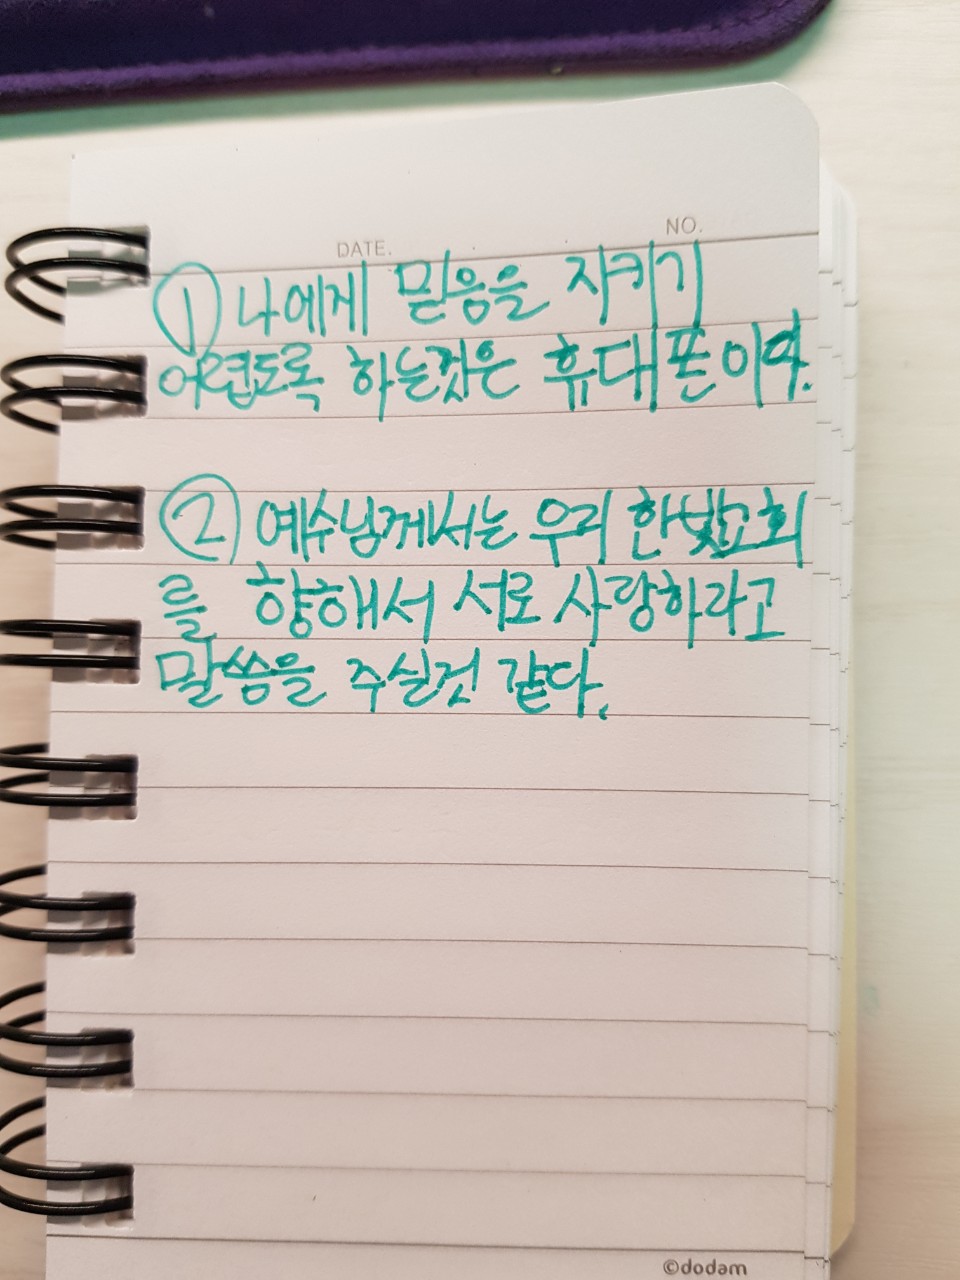 DATE.
NO.
① 나에게 믿음을 지키기
어렵도록 하는것은 휴대폰이야.
② 예수님께서는 우리 한빛교회
를 향해서 서로 사랑하라고
말씀을 주실것 같다.
©dodam